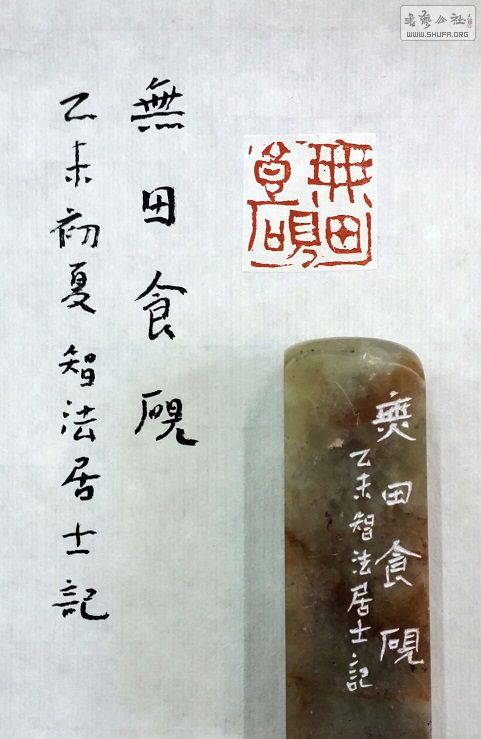 無田食硯
乙未初夏智法居士記
無田食硯
無田食硯
乙未智法居士記
書藝公社
WWW.SHUFA.ORG